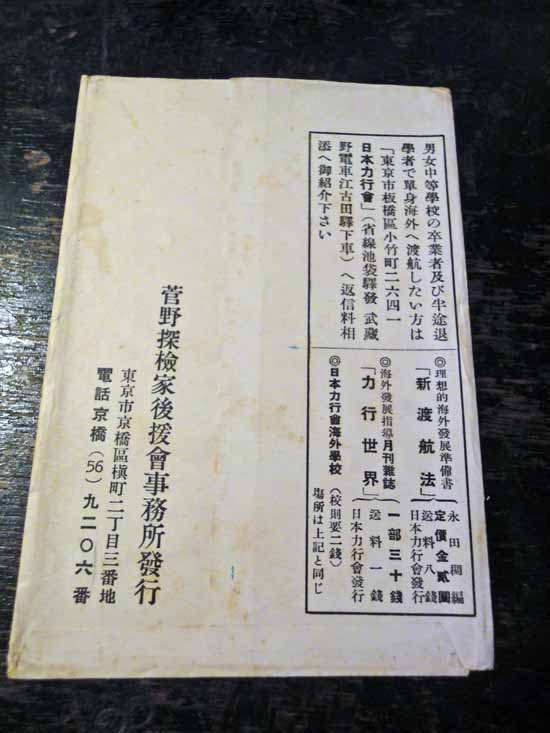 男女中等學校の卒業者及び半途退
學者で單身海外へ渡航したい方は
「東京市板橋區小竹町二六四一
日本力行會」（省線池袋驛發 武蔵
野電車江古田驛下車）へ返信料相
添へ御紹介下さい
◎理想的海外發展準備書
「新渡航法」
永田稠編
定價金貳圓
送料八錢
日本力行會發行
◎海外發展指導月刊雜誌
「力行世界」
一部三十錢
送料一錢
日本力行會發行
◎日本力行會海外學校
（校則要二錢）
塲所は上記と同じ
菅野探檢家後援會事務所發行
東京市京橋區槇町二丁目三番地
電話京橋（56）九二〇六番